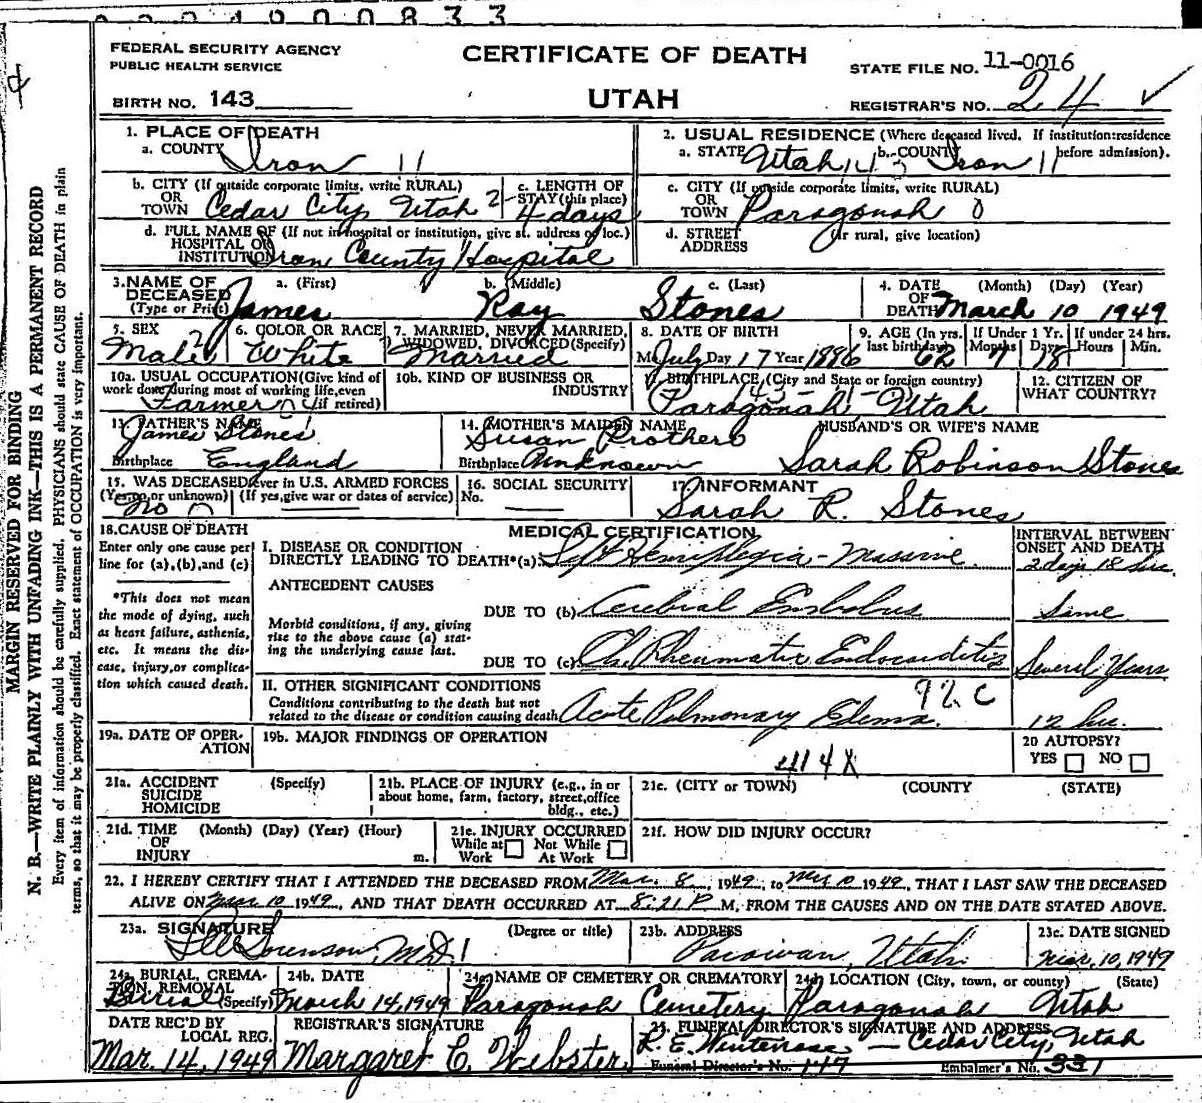 0 0 2 4 9 0 0 0 8 3 3
FEDERAL SECURITY AGENCY
PUBLIC HEALTH SERVICE
BIRTH NO. 143
CERTIFICATE OF DEATH
UTAH
STATE FILE NO. 11-0016
REGISTRAR'S NO. 24 ✓
MARGIN RESERVED FOR BINDING
N. B.—WRITE PLAINLY WITH UNFADING INK—THIS IS A PERMANENT RECORD
Every item of information should be carefully supplied. PHYSICIANS should state CAUSE OF DEATH in plain
terms, so that it may be properly classified. Exact statement of OCCUPATION is very important.
1. PLACE OF DEATH
a. COUNTY Iron 11
2. USUAL RESIDENCE (Where deceased lived. If institution: residence
a. STATE Utah b. COUNTY Iron 11 before admission).
b. CITY (If outside corporate limits, write RURAL)
OR
TOWN Cedar City, Utah 2
c. LENGTH OF
STAY (this place)
4 days
c. CITY (If outside corporate limits, write RURAL)
OR
TOWN Paragonah 0
d. FULL NAME OF (If not in hospital or institution, give st. address or loc.)
HOSPITAL OR
INSTITUTION Iron County Hospital
d. STREET (If rural, give location)
ADDRESS
3. NAME OF DECEASED (Type or Print)
a. (First) James
b. (Middle) Ray
c. (Last) Stones
4. DATE OF DEATH (Month) (Day) (Year)
March 10 1949
5. SEX
Male 2
6. COLOR OR RACE
White
7. MARRIED, NEVER MARRIED,
WIDOWED, DIVORCED (Specify)
Married
8. DATE OF BIRTH
Mo. July Day 17 Year 1886
9. AGE (In yrs. last birthday) 62
If Under 1 Yr. Months 7 Days
If under 24 hrs. Hours Min.
10a. USUAL OCCUPATION (Give kind of
work done during most of working life, even
if retired) Farmer
10b. KIND OF BUSINESS OR
INDUSTRY
11. BIRTHPLACE (City and State or foreign country)
Paragonah, Utah
12. CITIZEN OF
WHAT COUNTRY?
13. FATHER'S NAME
James Stones
Birthplace England
14. MOTHER'S MAIDEN NAME
Susan Prothero
Birthplace Unknown
HUSBAND'S OR WIFE'S NAME
Sarah Robinson Stones
15. WAS DECEASED ever in U.S. ARMED FORCES
(Yes, no, or unknown) (If yes, give war or dates of service)
no
16. SOCIAL SECURITY
No.
17. INFORMANT
Sarah R. Stones
18. CAUSE OF DEATH
Enter only one cause per
line for (a), (b), and (c)
*This does not mean
the mode of dying, such
as heart failure, asthenia,
etc. It means the dis-
ease, injury, or complica-
tion which caused death.
MEDICAL CERTIFICATION
INTERVAL BETWEEN
ONSET AND DEATH
I. DISEASE OR CONDITION
DIRECTLY LEADING TO DEATH*(a) Left Hemiplegia - Massive 2 days 18 hrs.
ANTECEDENT CAUSES
DUE TO (b) Cerebral Embolus Same
Morbid conditions, if any, giving
rise to the above cause (a) stat-
ing the underlying cause last.
DUE TO (c) Ch. Rheumatic Endocarditis Several Years
II. OTHER SIGNIFICANT CONDITIONS 92 C
Conditions contributing to the death but not
related to the disease or condition causing death
Acute Pulmonary Edema. 12 hrs.
19a. DATE OF OPER-
ATION
19b. MAJOR FINDINGS OF OPERATION
414X
20 AUTOPSY?
YES NO
21a. ACCIDENT (Specify)
SUICIDE
HOMICIDE
21b. PLACE OF INJURY (e.g., in or
about home, farm, factory, street, office
bldg., etc.)
21c. (CITY or TOWN) (COUNTY (STATE)
21d. TIME (Month) (Day) (Year) (Hour)
OF
INJURY m.
21e. INJURY OCCURRED
While at Work Not While At Work
21f. HOW DID INJURY OCCUR?
22. I HEREBY CERTIFY THAT I ATTENDED THE DECEASED FROM Mar. 8, 1949, to Mar 10 1949, THAT I LAST SAW THE DECEASED
ALIVE ON Mar 10 1949, AND THAT DEATH OCCURRED AT 8:21 P M, FROM THE CAUSES AND ON THE DATE STATED ABOVE.
23a. SIGNATURE (Degree or title)
Sorenson, M.D.
23b. ADDRESS
Parowan, Utah
23c. DATE SIGNED
Mar. 10, 1949
24a. BURIAL, CREMA-
TION, REMOVAL
(Specify) Burial
24b. DATE
March 14, 1949
24c. NAME OF CEMETERY OR CREMATORY
Paragonah Cemetery
24d. LOCATION (City, town, or county) (State)
Paragonah Utah
DATE REC'D BY
LOCAL REG.
Mar. 14, 1949
REGISTRAR'S SIGNATURE
Margaret E. Webster
25. FUNERAL DIRECTOR'S SIGNATURE AND ADDRESS
— Cedar City, Utah
Funeral Director's No. 147 Embalmer's No. 331